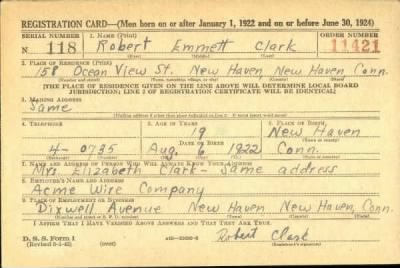 REGISTRATION CARD—(Men born on or after January 1, 1922 and on or before June 30, 1924)
SERIAL NUMBER 1. NAME (Print) ORDER NUMBER
N 118 Robert Emmett Clark 11421
(First) (Middle) (Last)
2. PLACE OF RESIDENCE (Print)
158 Ocean View St. New Haven, New Haven, Conn.
(Number and street) (Town, township, village, or city) (County) (State)
[THE PLACE OF RESIDENCE GIVEN ON THE LINE ABOVE WILL DETERMINE LOCAL BOARD
JURISDICTION; LINE 2 OF REGISTRATION CERTIFICATE WILL BE IDENTICAL]
3. MAILING ADDRESS
Same
[Mailing address if other than place indicated on line 2. If same insert word same]
4. TELEPHONE 5. AGE IN YEARS 6. PLACE OF BIRTH
19 New Haven
DATE OF BIRTH (Town or county)
4-0735 Aug. 6 1922 Conn.
(Exchange) (Number) (Mo.) (Day) (Yr.) (State or country)
7. NAME AND ADDRESS OF PERSON WHO WILL ALWAYS KNOW YOUR ADDRESS
Mrs. Elizabeth Clark - Same address
8. EMPLOYER'S NAME AND ADDRESS
Acme Wire Company
9. PLACE OF EMPLOYMENT OR BUSINESS
Dixwell Avenue New Haven New Haven, Conn.
(Number and street or R. F. D. number) (Town) (County) (State)
I AFFIRM THAT I HAVE VERIFIED ABOVE ANSWERS AND THAT THEY ARE TRUE.
D. S. S. Form 1
Robert Clark